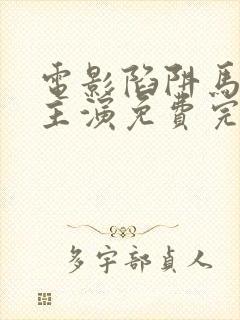 電影陷阱馬
主演免費完
多宇部貞人